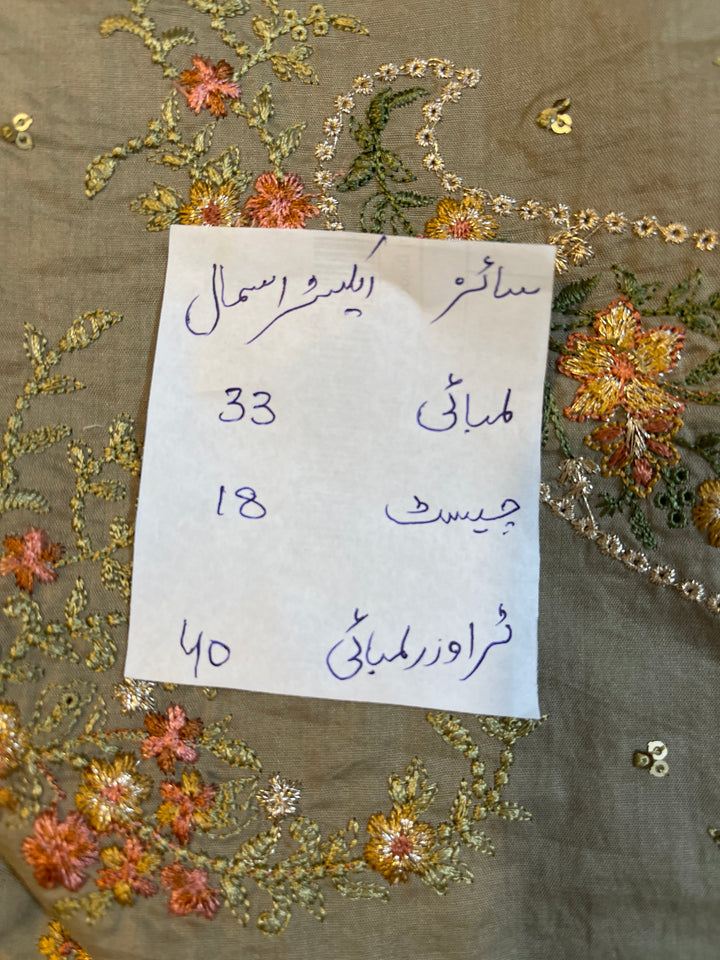 سائز ایکسٹرا سمال
لمبائی 33
چیسٹ 18
ٹراوزر لمبائی 40